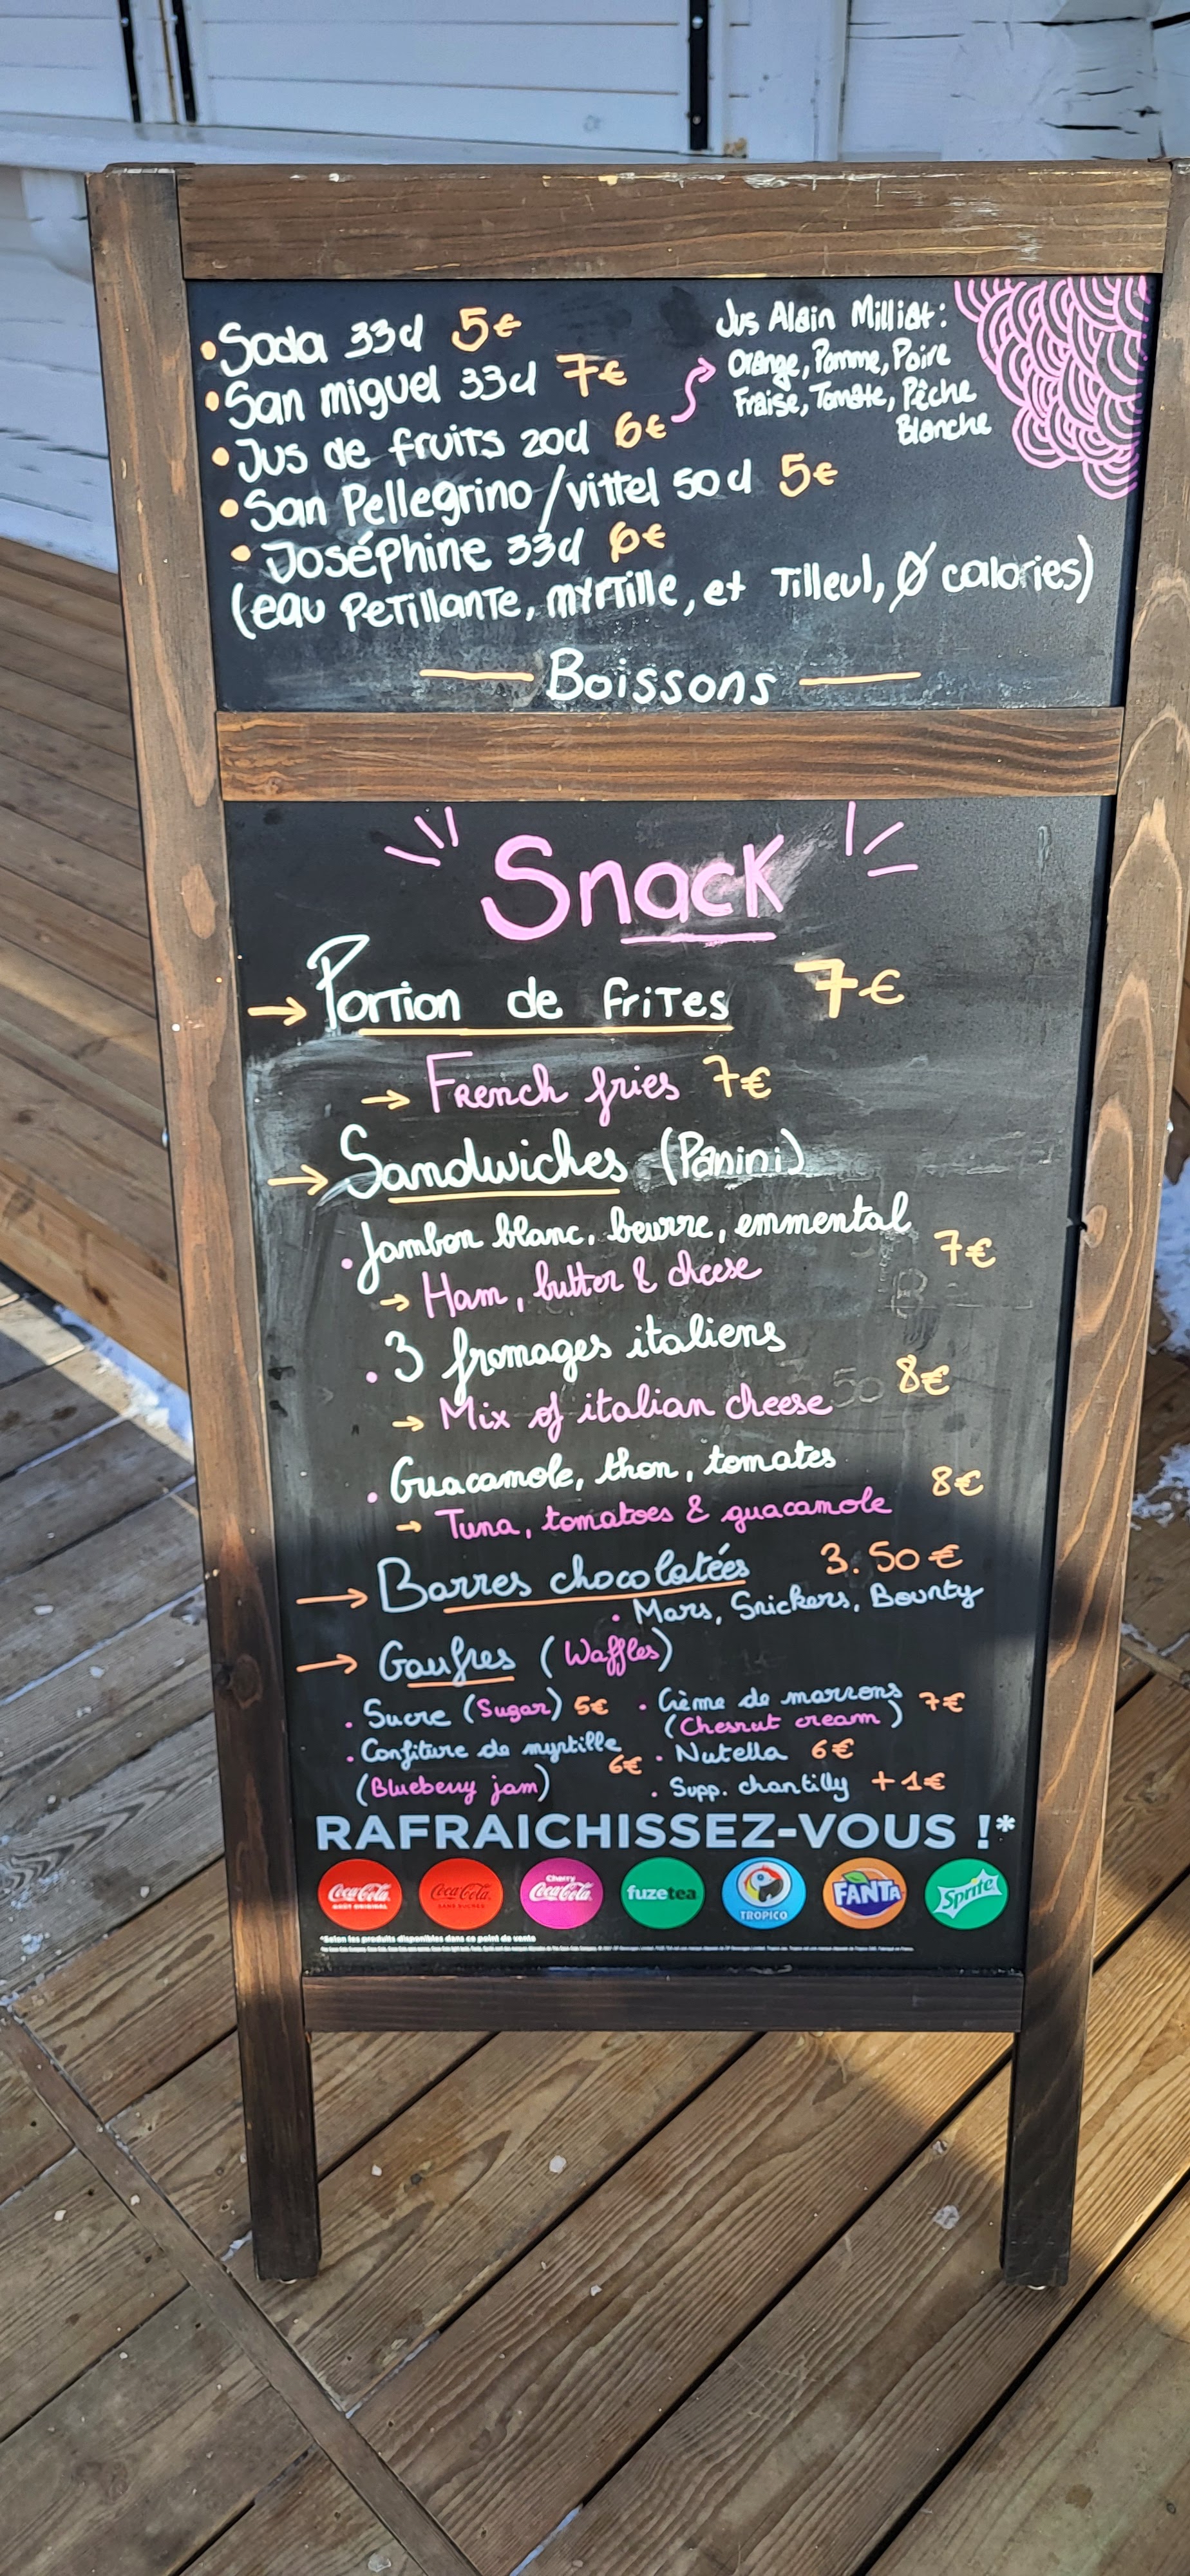 • Soda 33cl 5€
• San miguel 33cl 7€
• Jus de fruits 20cl 6€
Jus Alain Milliat:
Orange, Pomme, Poire
Fraise, Tomate, Pêche
Blanche
• San Pellegrino/vittel 50cl 5€
• Joséphine 33cl 6€
(eau PeTillanTe, myrTille, et Tilleul, Ø calories)
Boissons
Snack
→ Portion de friTes 7€
→ French fries 7€
→ Sandwiches (Panini)
• Jambon blanc, beurre, emmental
→ Ham, butter & cheese 7€
• 3 fromages italiens
→ Mix of italian cheese 8€
• Guacamole, thon, tomates
→ Tuna, tomatoes & guacamole 8€
→ Barres chocolatées 3.50€
• Mars, Snickers, Bounty
→ Gaufres (Waffles)
• Sucre (Sugar) 5€
• Confiture de myrtille
(Blueberry jam) 6€
• Crème de marrons 7€
(Chesnut cream)
• Nutella 6€
• Supp. chantilly +1€
RAFRAICHISSEZ-VOUS !*
Coca-Cola GOÛT ORIGINAL
Coca-Cola SANS SUCRES
Cherry Coca-Cola
fuzetea
TROPICO
FANTA
Sprite
*Selon les produits disponibles dans ce point de vente